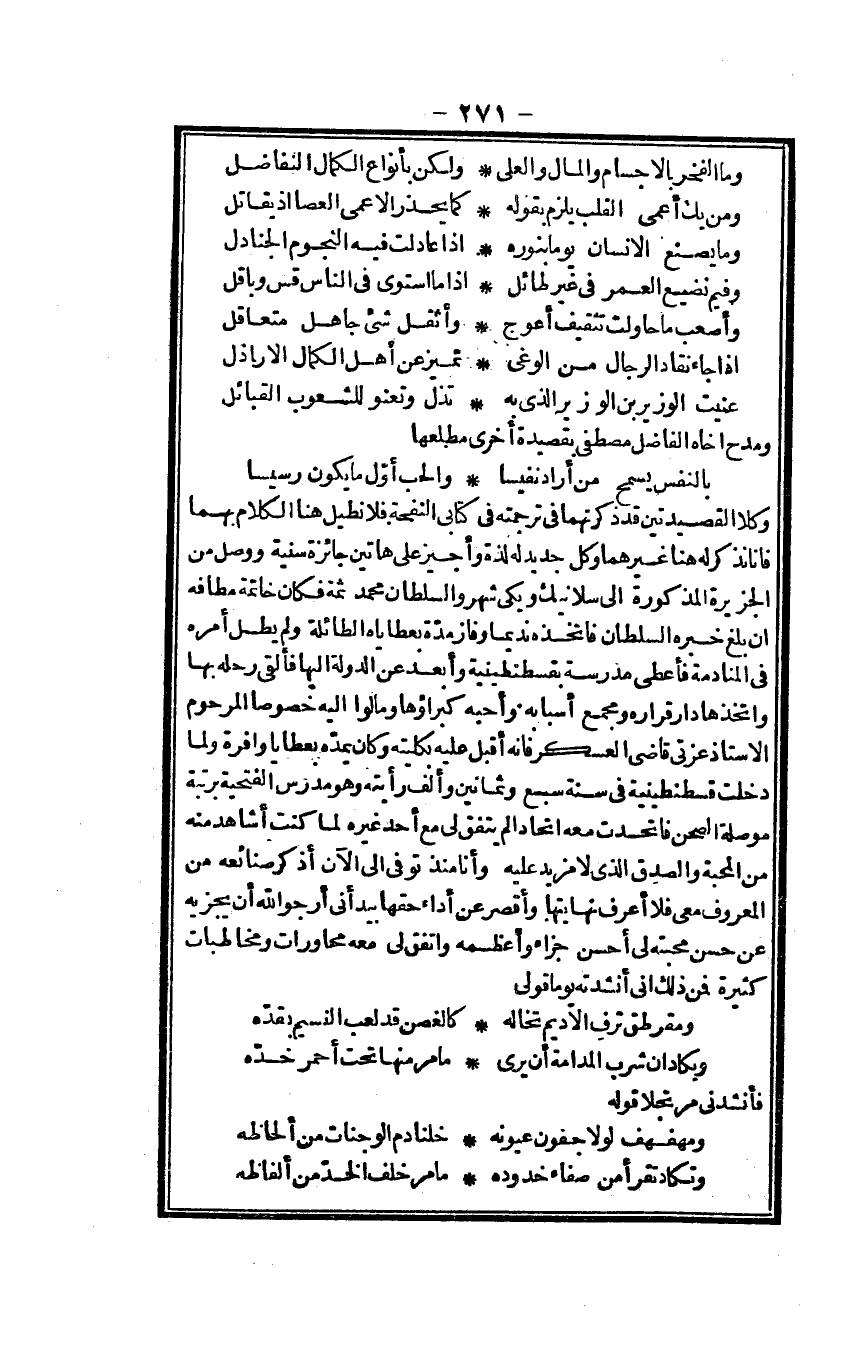 - ٢٧١ -
وما الفخر بالاجسام والمال والعلى * ولكن بأنواع الكمال التفاضل
ومن يك أعمى القلب يلزم بقوله * كما يحذر الاعمى العصا اذ يقاتل
وما يصنع الانسان يوما بنوره * اذا عادلت فيه النجوم الجنادل
وفيم نضيع العمر فى غير طائل * اذا ما استوى فى الناس قس وباقل
وأصعب ما حاولت تثقيف أعوج * وأثقل شئ جاهل متعاقل
اذا جاء نقاد الرجال من الوغى * تميز عن أهل الكمال الاراذل
عنيت الوزير بن الوزير الذى به * تذل وتعنو للشعوب القبائل
ومدح اخاه الفاضل مصطفى بقصيدة أخرى مطلعها
بالنفس يسمح من أراد نفيسا * والحب أوّل ما يكون رسيسا
وكلا القصيدتين قد ذكرتهما فى ترجمته فى كتابى النفحة فلا نطيل هنا الكلام بهما
فانا نذكر له هنا غيرهما وكل جديد له لذة وأجيز على هاتين جائزة سنية ووصل من
الجزيرة المذكورة الى سلانيك ويكى شهر والسلطان محمد ثمة فكان خاتمة مطافه
ان بلغ خبره السلطان فاتخذه نديما وفاز مدّة بعطاياه الطائلة ولم يطل أمره
فى المنادمة فأعطى مدرسة بقسطنطينية وأبعد عن الدولة اليها فألقى رحله بها
واتخذها دار قراره ومجمع أسبابه وأحبه كبراؤها ومالوا اليه خصوصا المرحوم
الاستاذ عزتى قاضى العسكر فانه أقبل عليه بكليته وكان يمدّه بعطايا وافرة ولما
دخلت قسطنطينية فى سنة سبع وثمانين وألف رأيته وهو مدرّس الفتحية برتبة
موصلة الصحن فاتحدت معه اتحادا لم يتفق لى مع أحد غيره لما كنت أشاهد منه
من المحبة والصدق الذى لا مزيد عليه وأنا منذ توفى الى الآن أذكر صنائعه من
المعروف معى فلا أعرف نهايتها وأقصر عن أداء حقها بيد أنى أرجو الله أن يجزيه
عن حسن محبته لى أحسن جزاء وأعظمه واتفق لى معه محاورات ومخاطبات
كثيرة فمن ذلك انى أنشدته يوما قولى
ومقرطق ترف الأديم تخاله * كالغصن قد لعب النسيم بقدّه
ويكاد ان شرب المدامة أن يرى * ما مر منها تحت أحمر خدّه
فأنشدنى مرتجلا قوله
ومهفهف لولا جفون عيونه * خلنا دم الوجنات من ألحاظه
وتكاد تقرأ من صفاء خدوده * ما مر خلف الخدّ من ألفاظه